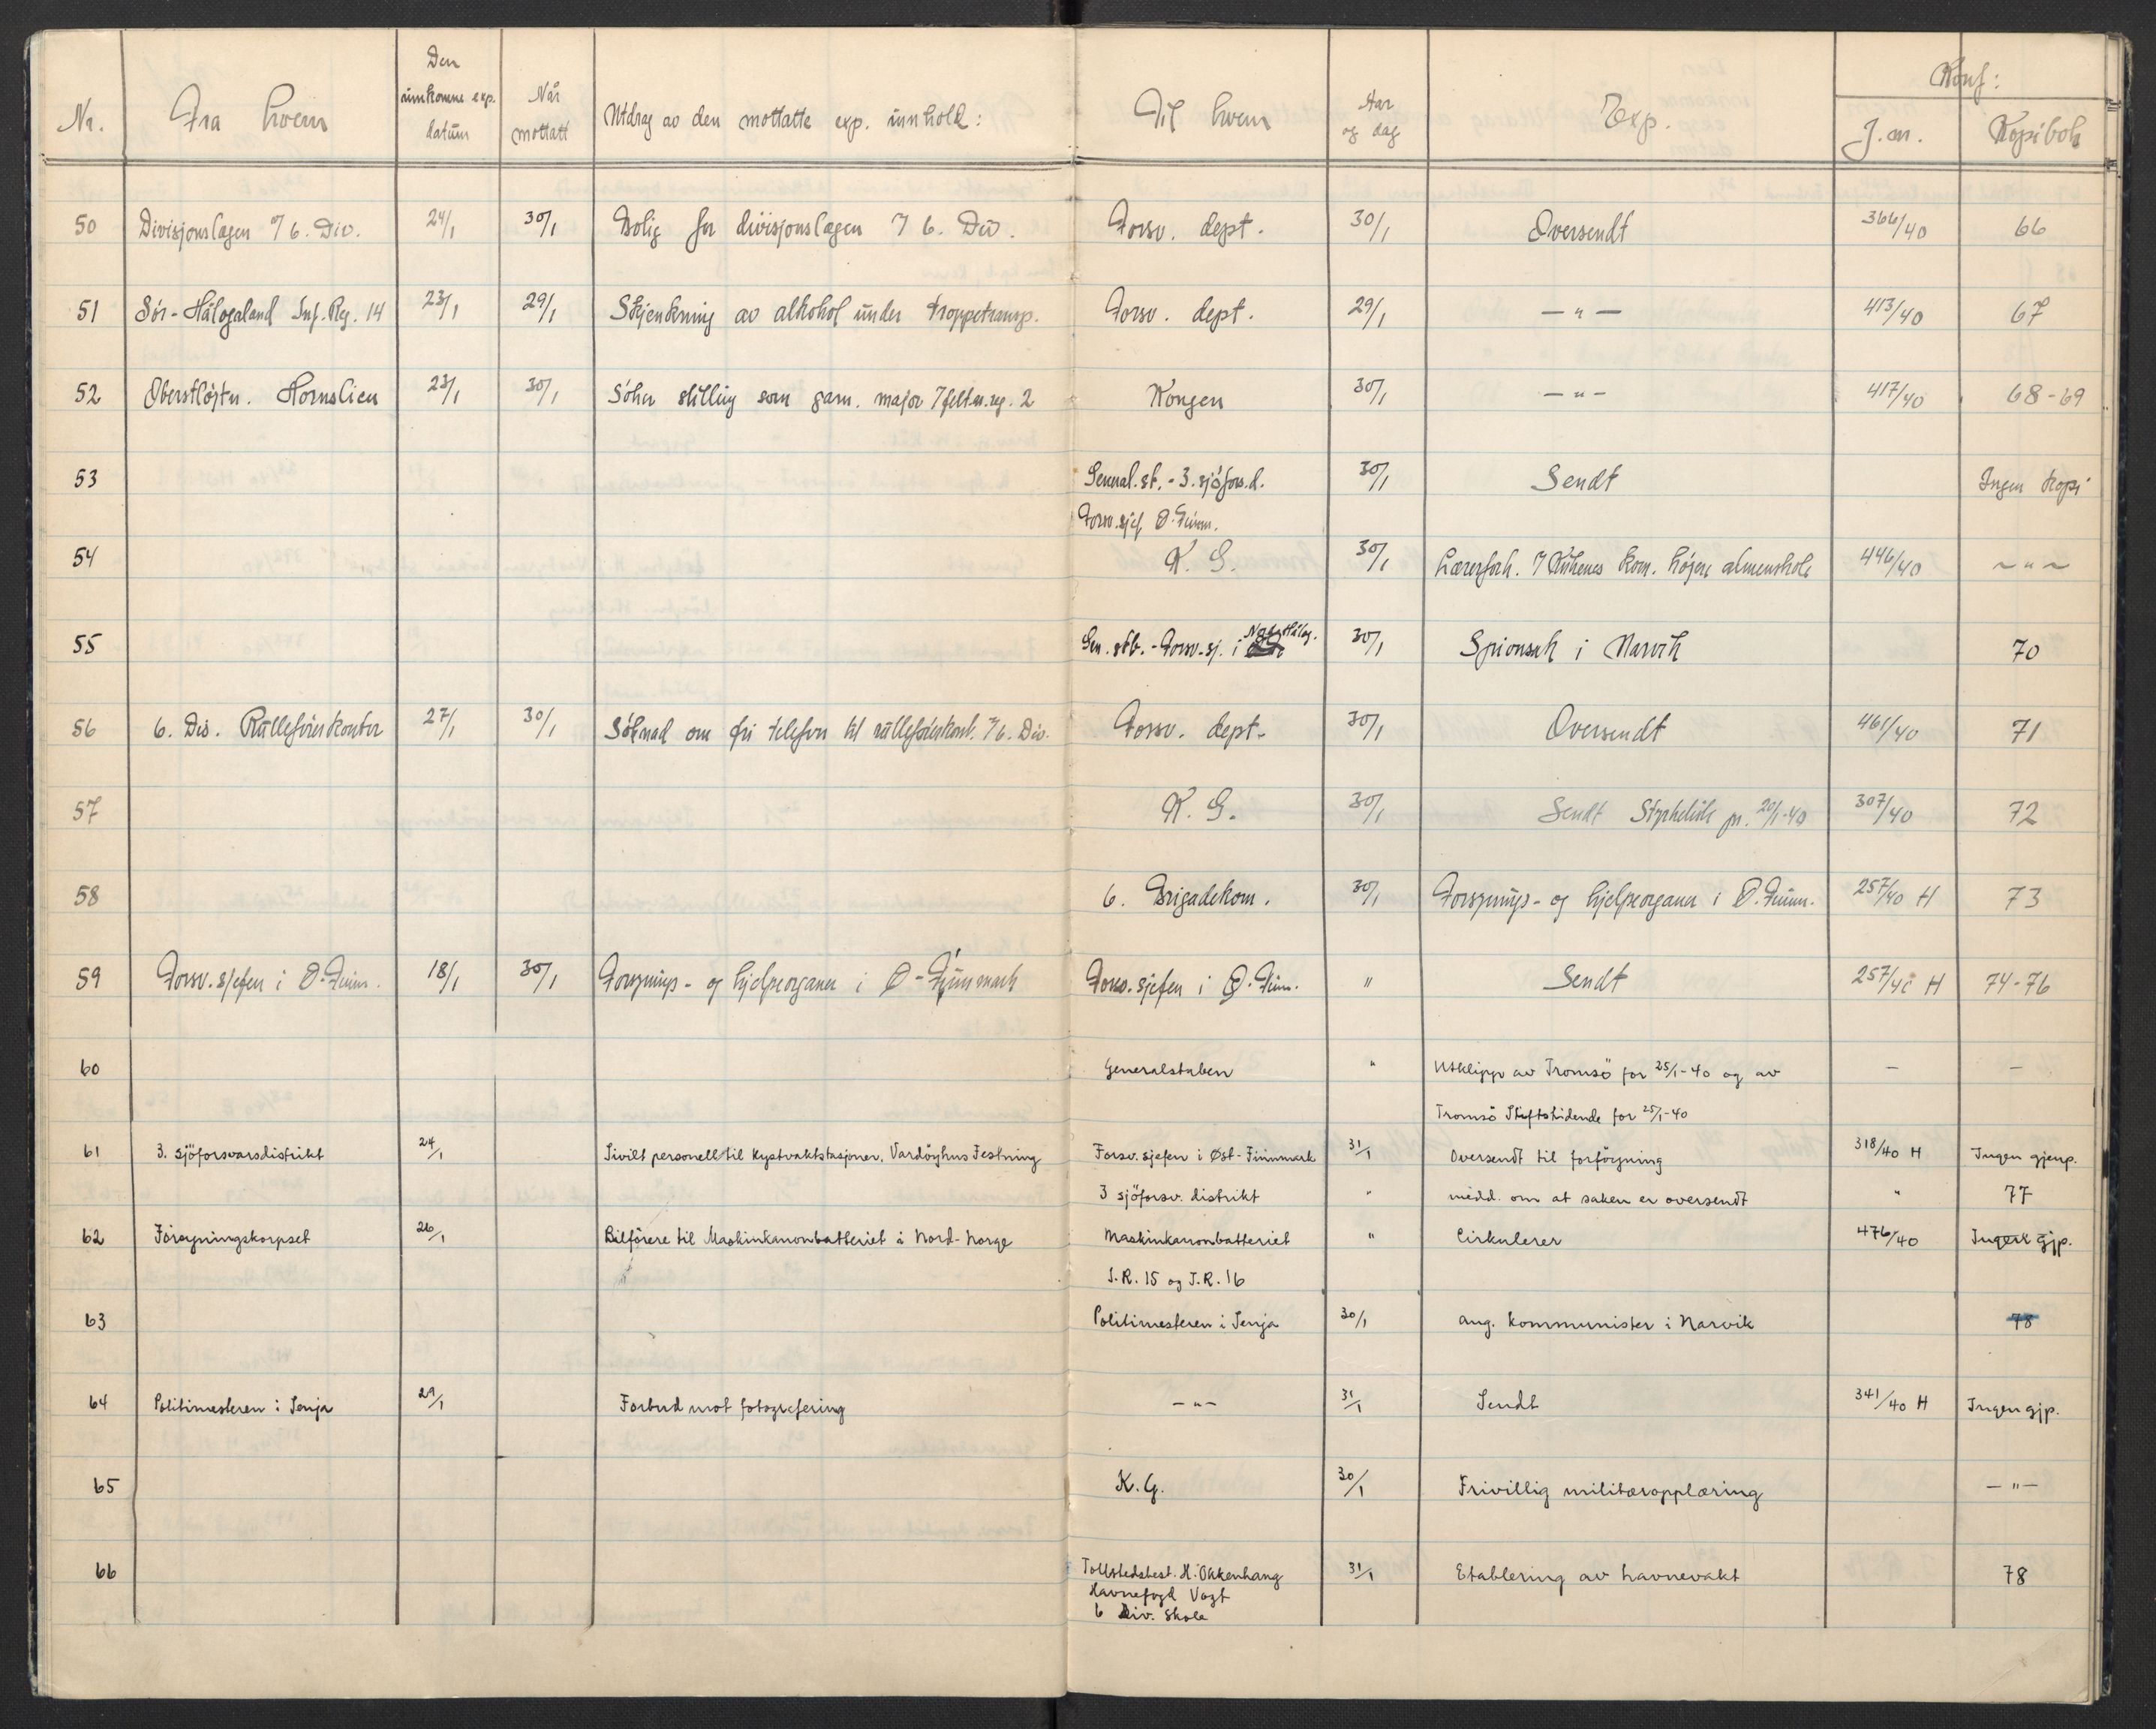 Nr. Fra hvem Den innkomne exp. datum Når mottatt Utdrag av den mottatte exp. innhold: Til hvem Aar og dag Exp. Konf: J.nr. Kopibok
50 Divisjonslegen 7/6. Div. 24/1 30/1 Bolig for divisjonslegen 7 6. Div. Forsv. dept. 30/1 Oversendt 366/40 66
51 Sör-Hålogaland Inf. Reg. 14 23/1 29/1 Skjenkning av alkohol under troppetransp. Forsv. dept. 29/1 — " — 413/40 67
52 Oberstløjtn. Hornslien 23/1 30/1 Söker stilling som garn. major 7 felt.a.reg. 2 Kongen 30/1 — " — 417/40 68-69
53 General.st. - 3. sjöforsv.d. 30/1 Sendt Ingen kopi
Forsv.sjef Ø. Finnm.
54 K. G. 30/1 Lærerforh. 7 Kirkenes kom. höjere almenskole 446/40 — " —
55 Gen. stb. - Forsv.sj. i Nord-Hålog. 30/1 Spionsak i Narvik 70
56 6. Div. Rulleförerkontor 27/1 30/1 Söknad om fri telefon til rulleförerkont. 7/6. Div. Forsv. dept. 30/1 Oversendt 461/40 71
57 K. G. 30/1 Sendt Styrkeliste pr. 20/1-40 307/40 72
58 6. Brigadekom. 30/1 Forsynings- og hjelpeorganer i Ø. Finnm. 257/40 H 73
59 Forsv.sjefen i Ø-Finnm. 18/1 30/1 Forsynings- og hjelpeorganer i Ø-Finnmark Forsv.sjefen i Ø. Finn. " Sendt 257/40 H 74-76
60 Generalstaben " Utklipp av Tromsö for 25/1-40 og av — —
Tromsö Stiftstidende for 25/1-40
61 3. sjöforsvarsdistrikt 24/1 Sivilt personell til kystvaktstasjoner, Vardöyhus Festning Forsv.sjefen i Øst-Finnmark 31/1 Oversendt til forföyning 318/40 H Ingen gjenp.
3 sjöforsv. distrikt " medd. om at saken er oversendt " 77
62 Forsyningskorpset 26/1 Bilförere til Maskinkanonbatteriet i Nord-Norge Maskinkanonbatteriet " Cirkulerer 476/40 Ingen gjp.
I.R. 15 og I.R. 16
63 Politimesteren i Senja 30/1 ang. kommunister i Narvik 78
64 Politimesteren i Senja 29/1 Forbud mot fotografering — " — 31/1 Sendt 341/40 H Ingen gjp.
65 K. G. 30/1 Frivillig militæropplæring — " —
66 Tollstedsbest. H. Okkenhaug 31/1 Etablering av havnevakt 78
Havnefogd Vogt
6 Div. Skole